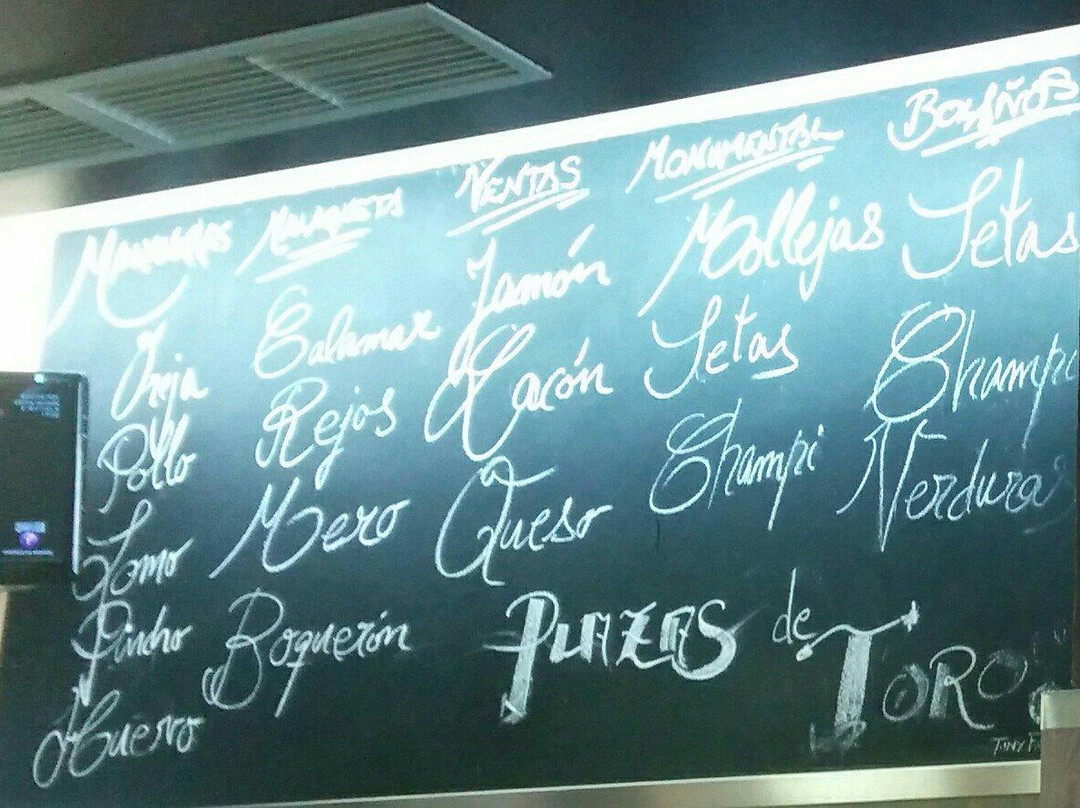 VENTAS
MONUMENTAL
BOLAÑOS
MALAGUETA
Oreja
Pollo
Lomo
Pincho
Huevo
Calamar
Rejos
Mero
Boquerón
Jamón
Lacón
Queso
Mollejas
Setas
Champi
Setas
Champi
Verduras
PLAZAS de TORO